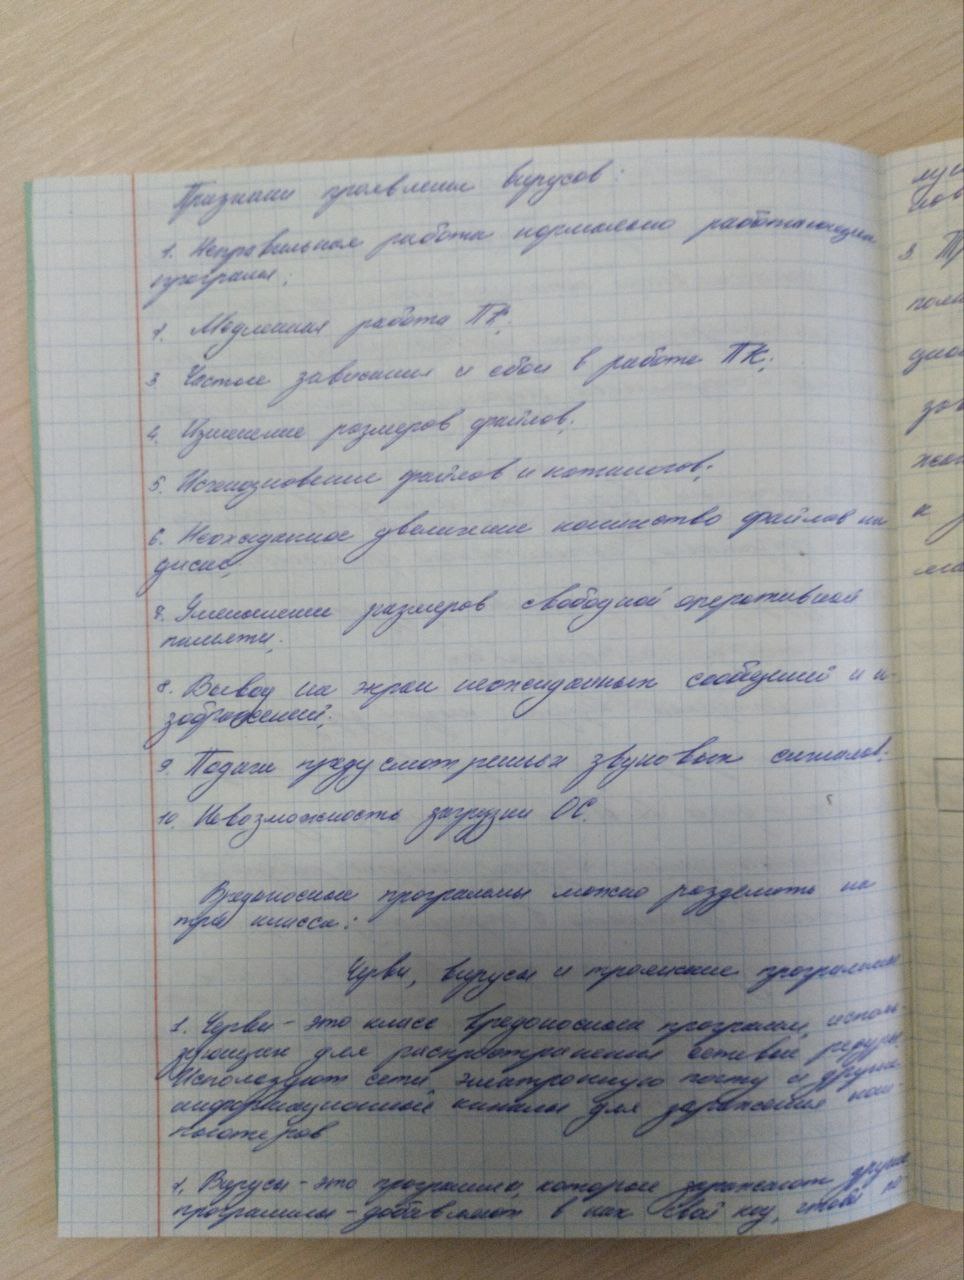 Признаки проявления вирусов:
1. Неправильная работа нормально работающих
программ;
2. Медленная работа ПК;
3. Частые зависания и сбои в работе ПК;
4. Изменение размеров файлов;
5. Исчезновение файлов и каталогов;
6. Неожиданное увеличение количество файлов на
диске;
7. Уменьшение размеров свободной оперативной
памяти;
8. Вывод на экран неожиданных сообщений и и-
зображений;
9. Подача предусмотренных звуковых сигналов;
10. Невозможность загрузки ОС.
Вредоносные программы можно разделить на
три класса:
Черви, вирусы и троянские программы
1. Черви - это класс вредоносных программ, исполь-
зующих для распространения сетевые ресурсы.
Используют сети, электронную почту и другие
информационный каналы для заражения ком-
пьютеров
2. Вирусы - это программы, которые заражают другие
программы - добавляют в них свой код, чтобы по-
3. Тр
к